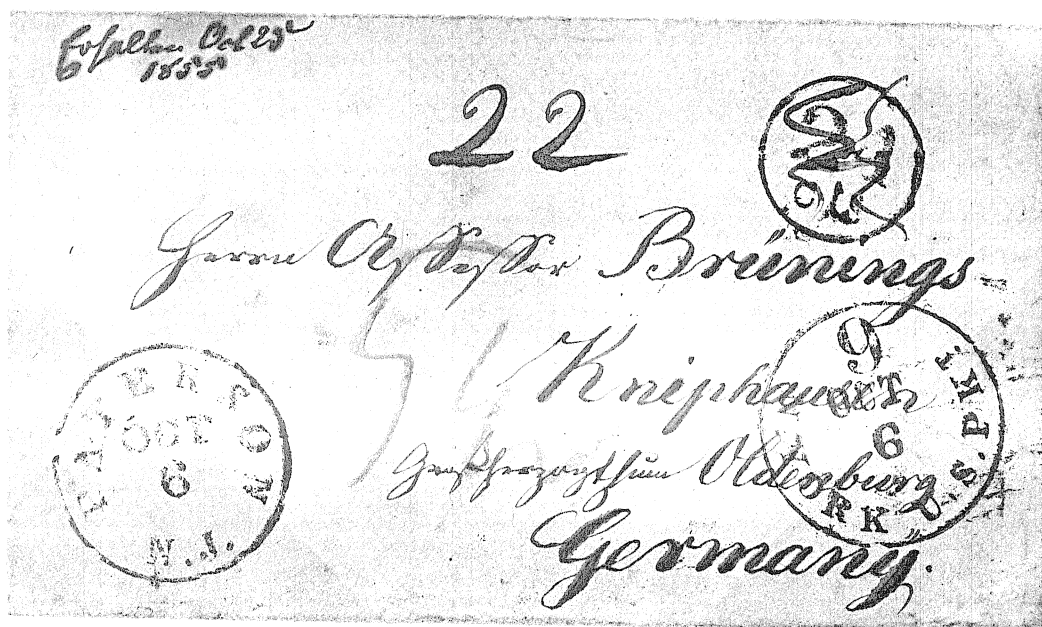 Erhalten Oct 25
1855
22
Herrn Assessor Brünings
Kniphausen
Großherzogthum Oldenburg
Germany.
PATERSON
OCT
6
N.J.
9
OCT
6
RK U.S. PKT.